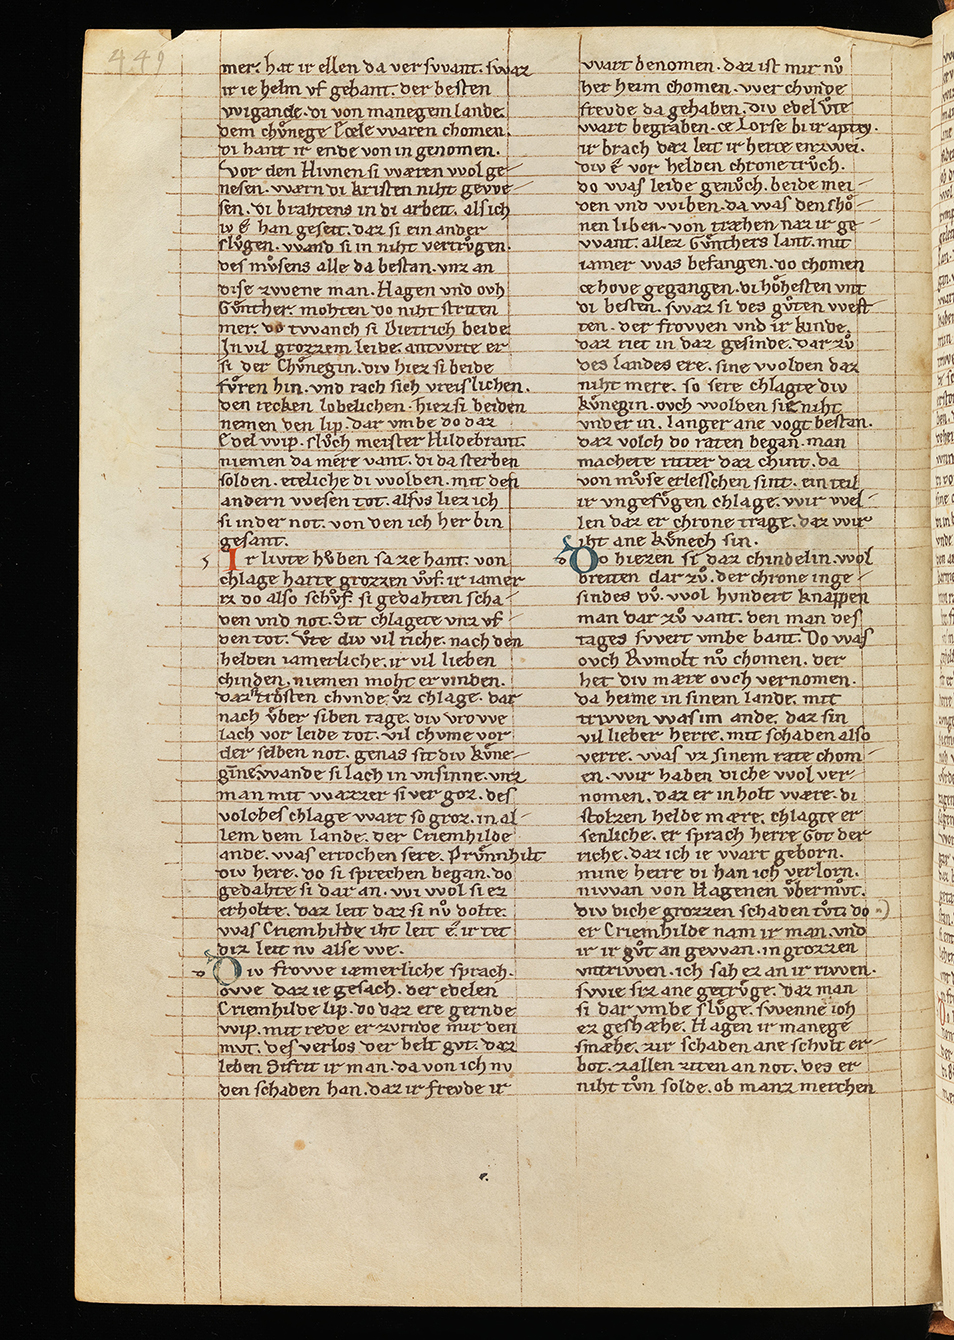 449
mer. hat ir ellen da ver svvant. svvaz
ir ie helm vf gebant. der besten
vvigande. di von manegem lande.
dem chv̊nege Ecele vvaren chomen.
di hant ir ende von in genomen.
Vor den Hivnen si wæren wol ge
nesen. wærn di kristen niht gewe
sen. di brahtens in di arbeit. als ich
iv é han geseit. daz si ein ander
slv̊gen. wand si in niht vertrv̊gen.
des mv̊sens alle da bestan. vnz an
dise zwene man. Hagen vnd ovh
Gv̊nther. mohten do niht striten
mer. do twanch si Dietrich beide
In vil grozzem leide. antvvrte er
si der Chv̊negin. div hiez si beide
fv̊ren hin. vnd rach sich vreislichen.
den recken lobelichen. hiez si beiden
nemen den lip. dar vmbe do daz
Edel wip. slv̊ch meister Hildebrant.
niemen da mere vant. di da sterben
solden. eteliche di wolden. mit den
andern wesen tot. alsvs liez ich
si in der not. von den ich her bin
gesant.
Ir livte hv̊ben sa ze hant. von
chlage harte grozzen wͦf. ir iamer
rz do also schv̊f. si gedahten scha
den vnd not. Sit chlagete vnz vf
den tot. Vͦte div vil riche. nach den
helden iamerliche. ir vil lieben
chinden. niemen moht er vinden.
daz trosten chvnde. vͦz chlage. dar
nach vͦber siben tage. div vrovve
lach vor leide tot. vil chvme vor
der selben not. genas sit div kv̊ne
gīne. wande si lach in vnsinne. vnz
man mit wazzer si ver goz. des
volches chlage wart so groz. in al
lem dem lande. der Criemhilde
ande. was errochen sere. Prv̊nnhilt
div here. do si sprechen began. do
gedahte si dar an. wi wol si ez
erholte. daz leit daz si nv̊ dolte.
was Criemhilde iht leit é. ir tet
diz leit nv alse we.
Div frovve iæmerliche sprach.
ovve daz ie gesach. der edelen
Criemhilde lip. do daz ere gernde
wip. mit rede er zvrnde mir den
mvt. des verlos der helt gvt. daz
leben Sifrit ir man. da von ich nv
den schaden han. daz ir frevde ir
wart benomen. daz ist mir nv̊
her heim chomen. wer chvnde
frevde da gehaben. div edel Vͦte
wart begraben. ce Lorse bi ir aptey.
ir brach daz leit ir herce enzwei.
div é vor helden chrone trv̊ch.
do was leide genv̊ch. beide mei
den vnd wiben. da was den scho
nen liben. von træhen naz ir ge
want. allez Gv̊nthers lant. mit
iamer was befangen. do chomen
ce hove gegangen. di hohesten vnt
di besten. swaz si des gv̊ten west
ten. der frovven vnd ir kinde.
daz riet in daz gesinde. dar zv̊
des landes ere. sine wolden daz
niht mere. so sere chlagte div
kv̊negin. ovch wolden sie niht
vnder in. langer ane vogt bestan.
daz volch do raten began. man
machete ritter daz chint. da
von mv̊se erlesschen sint. ein teil
ir vngefv̊gen chlage. wir wel
len daz er chrone trage. daz wir
iht ane kv̊nech sin.
Do hiezen si daz chindelin. wol
breiten dar zv̊. der chrone inge
sindes dv̊. wol hvndert knappen
man dar zv̊ vant. den man des
tages swert vmbe bant. Do was
ovch Rvmolt nv̊ chomen. der
het div mære ovch vernomen.
da heime in sinem lande. mit
trivven was im ande. daz sin
vil lieber herre. mit schaden also
verre. was vz sinem rate chom
en. wir haben diche wol ver
nomen. daz er in holt wære. di
stolzen helde mære. chlagte er
senliche. er sprach herre Got der
riche. daz ich ie wart geborn.
mine herre di han ich verlorn.
niwan von Hagenen vͦbermvͦt.
div diche grozzen schaden tv̊t. do
er Criemhilde nam ir man. vnd
ir ir gv̊t an gewan. in grozzen
vntrivven. ich sah ez an ir rivven.
swie siz ane getrv̊ge. daz man
si dar vmbe slv̊ge. swenne ioh
ez geshæhe. Hagen ir manege
smæhe. zir schaden ane schvlt er
bot. zallen ziten an not. des er
niht tv̊n solde. ob manz merchen